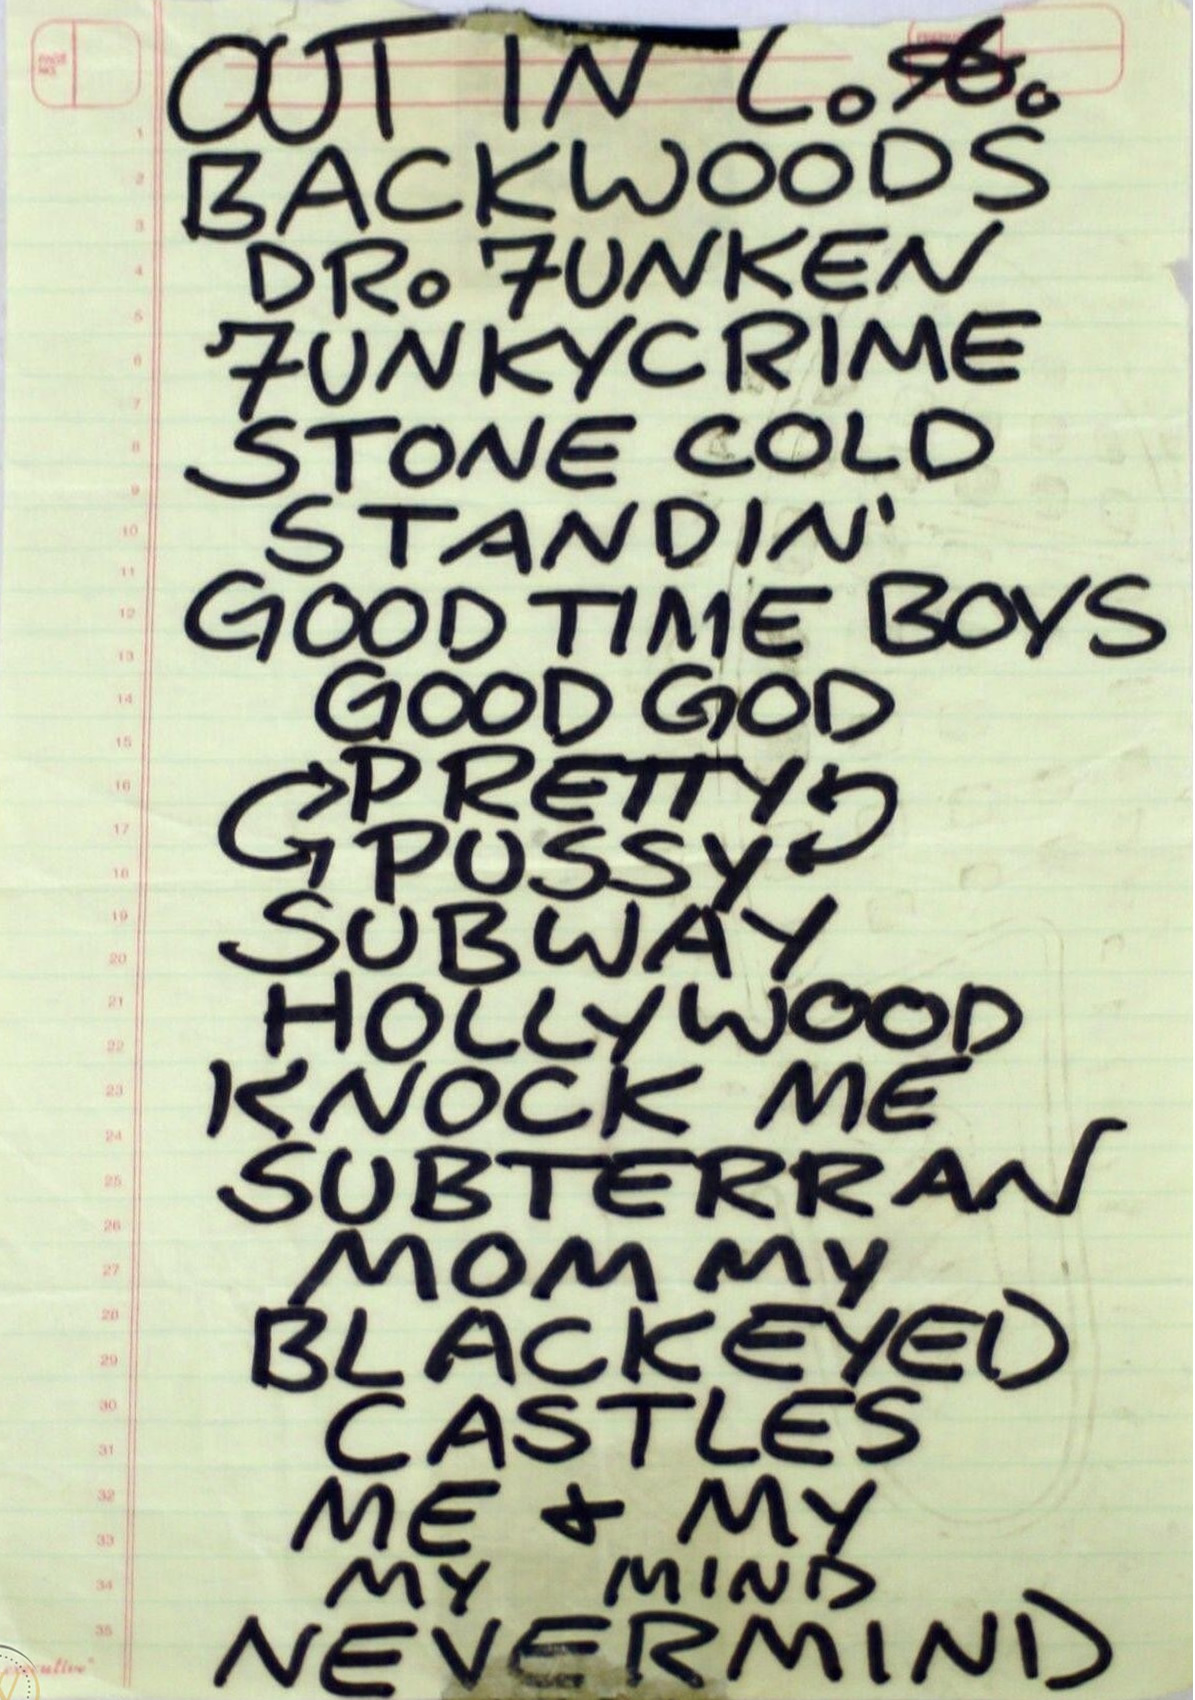 OUT IN L.A.
BACKWOODS
DR. FUNKEN
FUNKYCRIME
STONE COLD
STANDIN'
GOOD TIME BOYS
GOOD GOD
PRETTY
PUSSY
SUBWAY
HOLLYWOOD
KNOCK ME
SUBTERRAN
MOMMY
BLACKEYED
CASTLES
ME & MY
MY MIND
NEVERMIND
1
2
3
4
5
6
7
8
9
10
11
12
13
14
15
16
17
18
19
20
21
22
23
24
25
26
27
28
29
30
31
32
33
34
35
executive